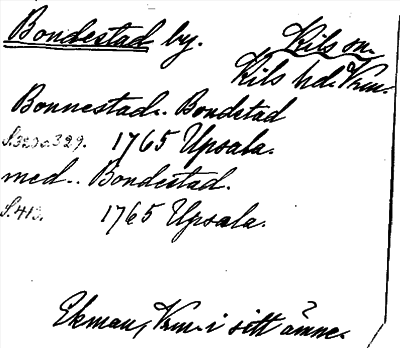 Bondestad by. Kils sn.
Kils hd. Vrm.
Bonnestad.. Bondstad
S.32 o. 329. 1765 Upsala.
med.. Bondestad.
S. 413. 1765 Upsala.
Ekman, Vrm. i sitt ämne.